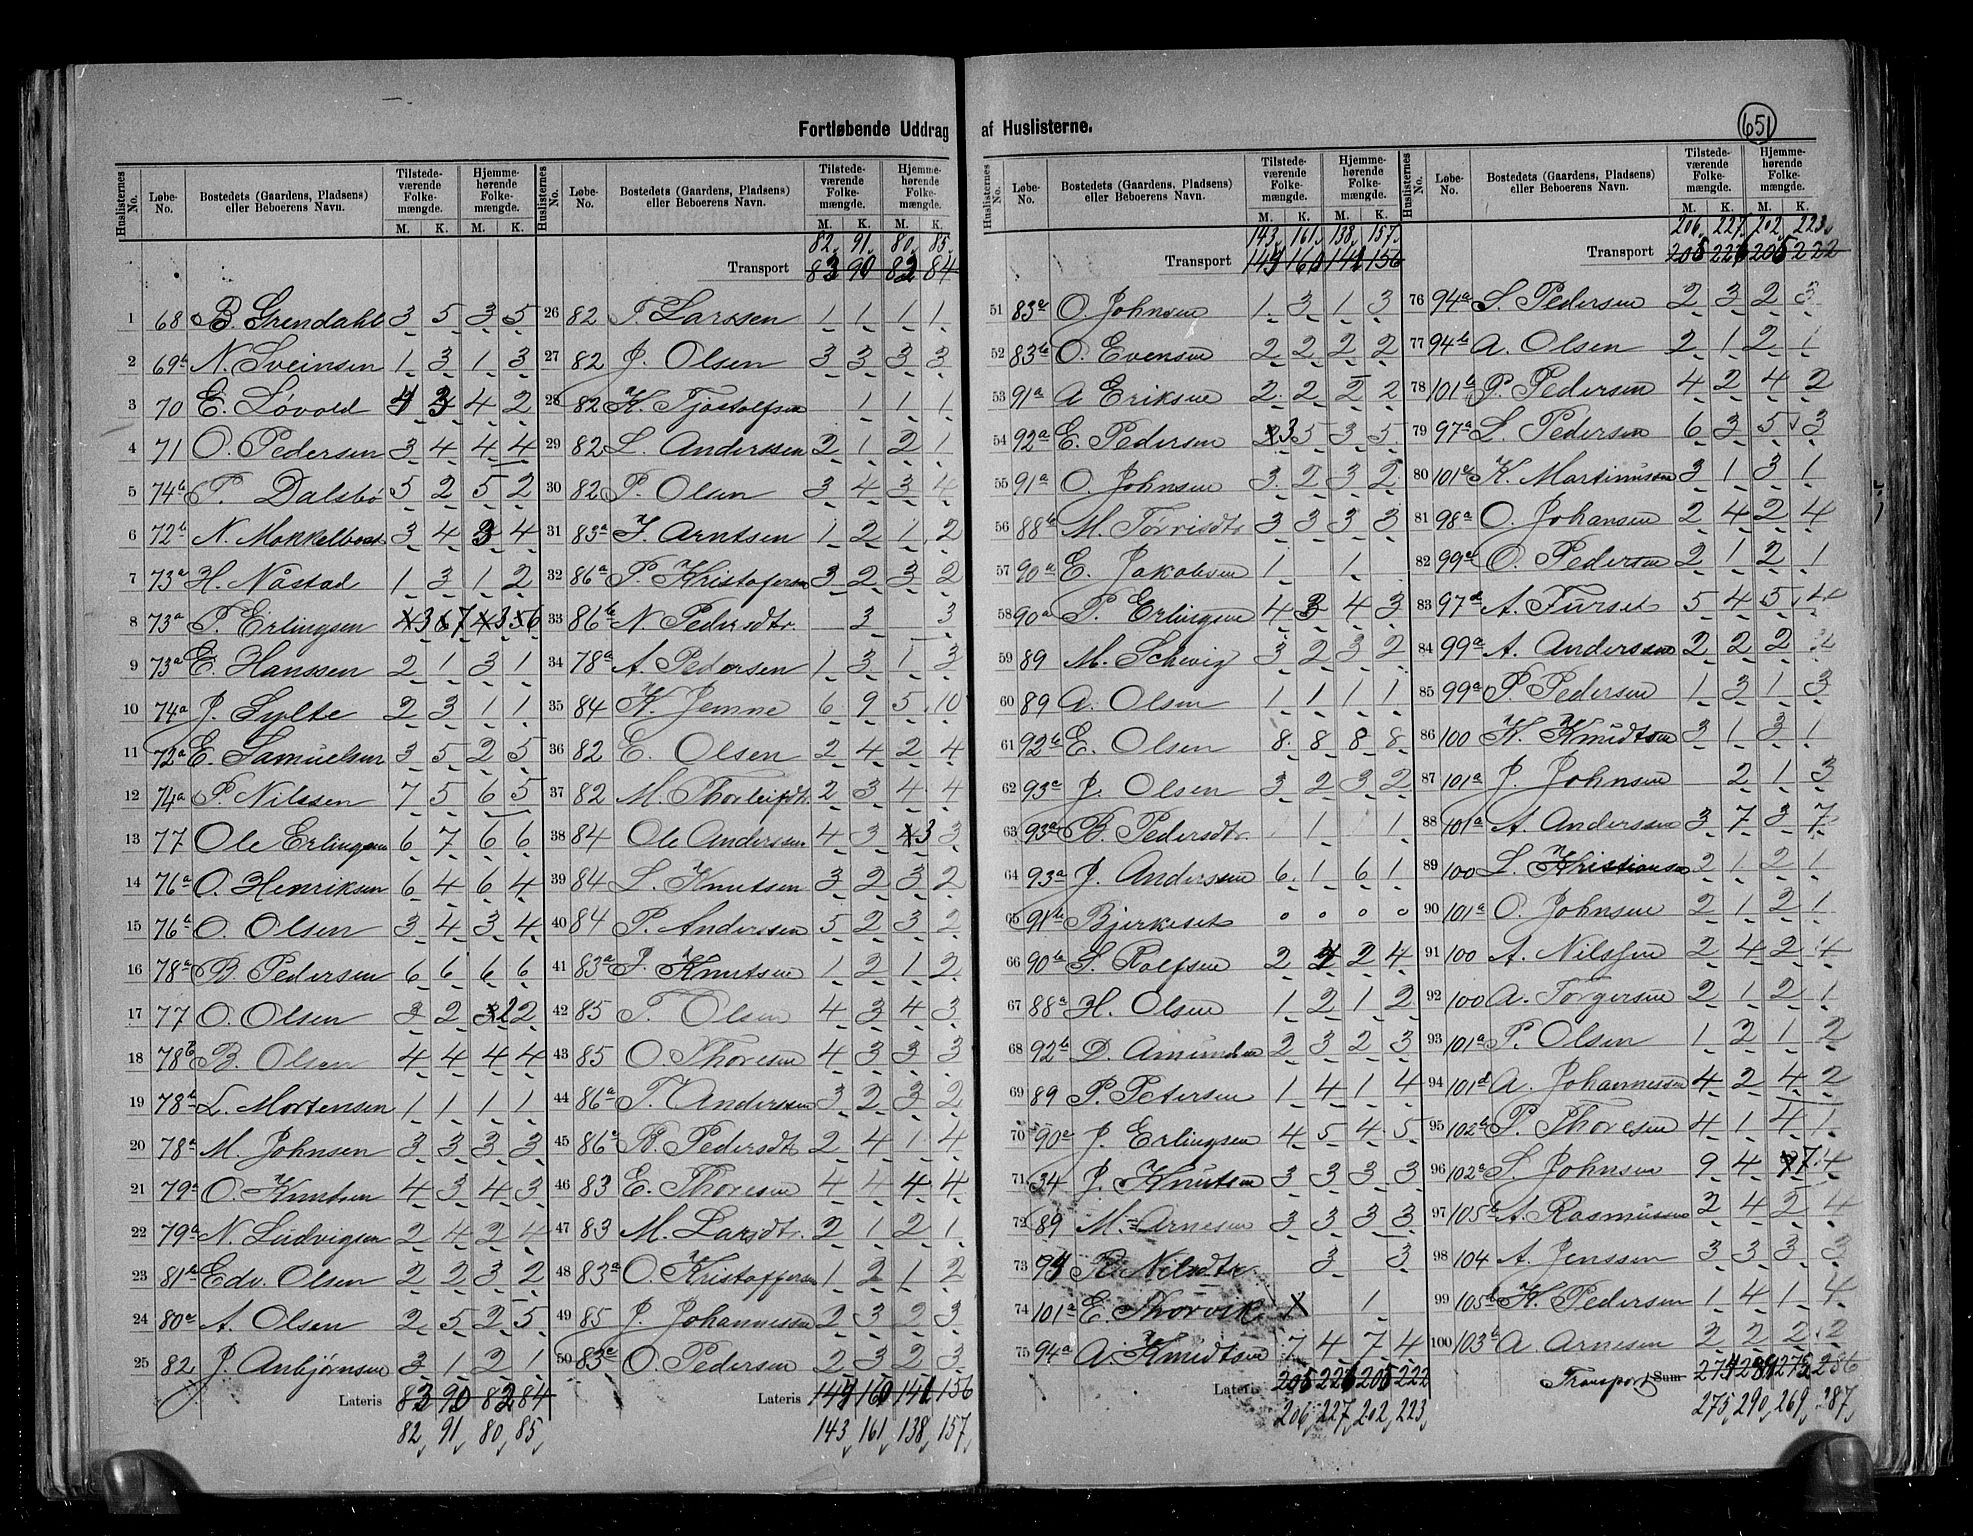 Fortløbende Uddrag af Huslisterne.
651
Huslisternes No. Løbe-No. Bostedets (Gaardens, Pladsens) eller Beboerens Navn. Tilstedeværende Folkemængde. M. K. Hjemmehørende Folkemængde. M. K.
1 68 B. Grendahl 3 5 3 5
2 69b N. Sveinsen 1 3 1 3
3 70 E. Løvold 4 2
4 71 O. Pedersen 3 4 4 4
5 74b P Dalsbø 5 2 5 2
6 72b N. Mokkelbost 3 4 3 4
7 73a H. Nåstad 1 3 1 2
8 73a P. Erlingsen 3 7 3 6
9 73a E. Hanssen 2 1 3 1
10 74a J. Sylte 2 3 1 1
11 72a E. Samuelsen 3 5 2 5
12 74a P. Nilssen 7 5 6 5
13 77 Ole Erlingsen 6 7 6 6
14 76a O. Henriksen 6 4 6 4
15 76a O. Olsen 3 4 3 4
16 78a B. Pedersen 6 6 6 6
17 77 O. Olsen 3 2 2 2
18 78b B. Olsen 4 4 4 4
19 78b L. Mortensen 1 1 1 1
20 78a M. Johnsen 3 3 3 3
21 79a O. Knutsen 4 3 4 3
22 79a N. Ludvigsen 2 4 2 4
23 81a Edv. Olsen 2 2 3 2
24 80a A. Olsen 2 5 2 5
25 82 J. Anbjønsen 3 1 2 1
Lateris 83 90 82 84
82 91 80 85
Huslisternes No. Løbe-No. Bostedets (Gaardens, Pladsens) eller Beboerens Navn. Tilstedeværende Folkemængde. M. K. Hjemmehørende Folkemængde. M. K.
82 91 80 85
Transport 83 90 82 84
26 82 T. Larssen 1 1 1 1
27 82 J. Olsen 3 3 3 3
28 82 K. Tjostolfsen 1 1 1
29 82 L. Anderssen 2 1 2 1
30 82 P. Olsen 3 4 3 4
31 83a J. Arntsen 1 2 1 2
32 86a P. Kristofersen 3 2 3 2
33 86b N. Pedersdtr. 3 3
34 78a A. Pedersen 1 3 1 3
35 84 K. Jemne 6 9 5 10
36 82 E. Olsen 2 4 2 4
37 82 M. Thorleifdtr. 2 3 4 4
38 84 Ole Anderssen 4 3 3 3
39 84 L. Knutsen 3 2 3 2
40 84 P. Anderssen 5 2 3 2
41 83a J. Knutsen 1 2 1 2
42 85 T. Olsen 4 3 4 3
43 85 O. Thoresen 4 3 3 3
44 86a T. Anderssen 3 2 3 2
45 86a R. Pedersdtr 2 4 1 4
46 83 E. Thoresen 4 4 4 4
47 83 M. Larsdtr. 2 1 2 1
48 83a O. Kristoffersen 1 2 1 2
49 85 J. Johannessen 2 3 2 3
50 83c O. Pedersen 2 3 2 3
Lateris 160 156
143 161 138 157
Huslisternes No. Løbe-No. Bostedets (Gaardens, Pladsens) eller Beboerens Navn. Tilstedeværende Folkemængde. M. K. Hjemmehørende Folkemængde. M. K.
143 161 138 157
Transport 160 156
51 83a O. Johnsen 1 3 1 3
52 83b O. Evensen 2 2 2 2
53 91a A Eriksen 2 2 2 2
54 92a E. Pedersen 3 5 3 5
55 91a O. Johnsen 3 2 3 2
56 88b M. Torrisdtr 3 3 3 3
57 90a E. Jakobsen 1 1
58 90a P. Erlingsen 4 3 4 3
59 89 M. Schevig 3 2 3 2
60 89 A. Olsen 1 1 1 1
61 92b E. Olsen 8 8 8 8
62 93a J. Olsen 3 2 3 2
63 93a B. Pedersdtr. 1 1
64 93a J. Anderssen 6 1 6 1
65 91b Bjerkeset 0 0 0 0
66 90b S. Rolfsen 2 4 2 4
67 88a H. Olsen 1 2 1 2
68 92b D. Amundsen 2 3 2 3
69 89 P. Petersen 1 4 1 4
70 90a J. Erlingsen 4 5 4 5
71 34 J. Knutsen 3 3 3 3
72 89 M. Arnesen 3 3 3 3
73 94 R. Nilsdtr 3 3
74 101a E. Thorvik 1
75 94a A. Knudtsen 7 4 7 4
Lateris 205 226 205 222
206 227 202 223
Huslisternes No. Løbe-No. Bostedets (Gaardens, Pladsens) eller Beboerens Navn. Tilstedeværende Folkemængde. M. K. Hjemmehørende Folkemængde. M. K.
206 227 202 223
Transport 205 226 205 222
76 94a S. Pedersen 2 3 2 3
77 94b A. Olsen 2 1 2 1
78 101b P. Pedersen 4 2 4 2
79 97a L. Pedersen 6 3 5 3
80 101c K. Martinussen 3 1 3 1
81 98a O. Johansen 2 4 2 4
82 99a O. Pedersen 2 1 2 1
83 97d A. Furset 5 4 5 4
84 99a A. Anderssen 2 2 2
85 99a P. Pedersen 1 3 1 3
86 100 K. Knudtsen 3 1 3 1
87 101a J. Johnsen 2 1 3
88 101a A. Anderssen 3 7 3 7
89 100 L. Kristiansen 2 1 2 1
90 101a O. Johnsen 2 1 2 1
91 100 A. Nilssen 2 4 2 4
92 100 A. Torgersen 2 1 2 1
93 101a P. Olsen 1 2 1 2
94 101d A. Johannessen 4 2 4 2
95 102b P. Thoresen 4 1 4 1
96 102a S. Johnsen 9 4 7 4
97 105b A. Rasmussen 2 4 2 4
98 104 A. Jenssen 3 3 3 3
99 105b K. Pedersen 1 4 1 4
100 103b A. Arnesen 2 2 2 2
Transport Sum 286
275 290 269 287